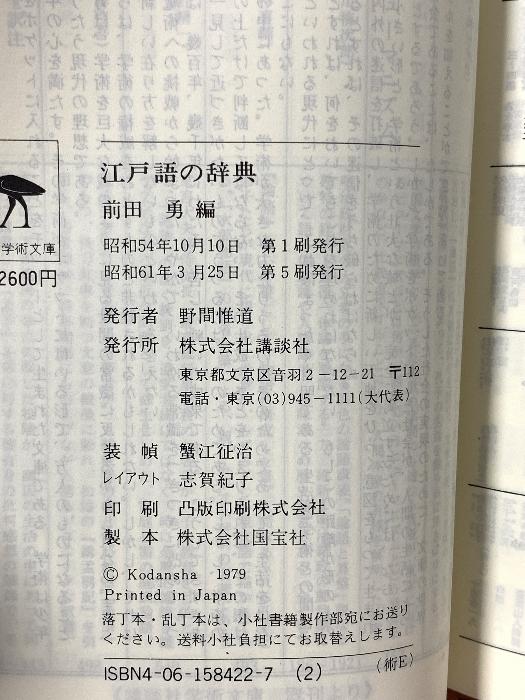 学術文庫
2600円
江戸語の辞典
前田 勇 編
昭和54年10月10日 第1刷発行
昭和61年3月25日 第5刷発行
発行者 野間惟道
発行所 株式会社講談社
東京都文京区音羽2-12-21 〒112
電話・東京(03)945-1111(大代表)
装 幀 蟹江征治
レイアウト 志賀紀子
印 刷 凸版印刷株式会社
製 本 株式会社国宝社
© Kodansha 1979
Printed in Japan
落丁本・乱丁本は、小社書籍製作部宛にお送り
ください。送料小社負担にてお取替えします。
ISBN4-06-158422-7 (2)
(術E)